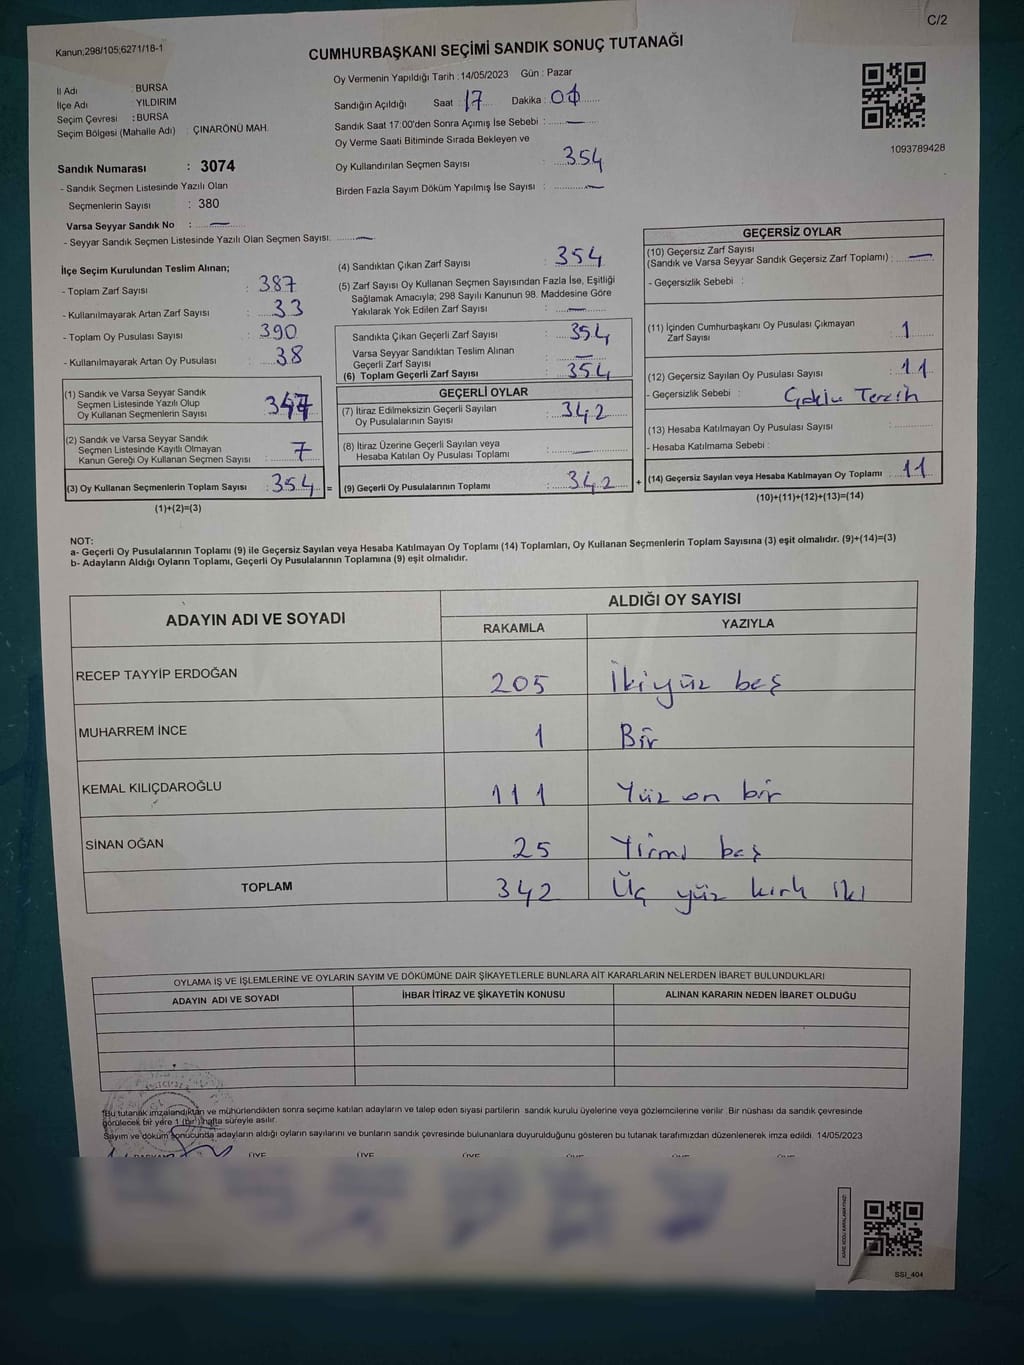 C/2
Kanun;298/105;6271/18-1
CUMHURBAŞKANI SEÇİMİ SANDIK SONUÇ TUTANAĞI
İl Adı : BURSA
İlçe Adı : YILDIRIM
Seçim Çevresi : BURSA
Seçim Bölgesi (Mahalle Adı) : ÇINARÖNÜ MAH.
Sandık Numarası : 3074
- Sandık Seçmen Listesinde Yazılı Olan
Seçmenlerin Sayısı : 380
Varsa Seyyar Sandık No : —
- Seyyar Sandık Seçmen Listesinde Yazılı Olan Seçmen Sayısı: —
Oy Vermenin Yapıldığı Tarih : 14/05/2023 Gün : Pazar
Sandığın Açıldığı Saat : 17 Dakika : 00
Sandık Saat 17:00'den Sonra Açımış İse Sebebi : —
Oy Verme Saati Bitiminde Sırada Bekleyen ve
Oy Kullandırılan Seçmen Sayısı : 354
Birden Fazla Sayım Döküm Yapılmış İse Sayısı : —
1093789428
İlçe Seçim Kurulundan Teslim Alınan;
- Toplam Zarf Sayısı : 387
- Kullanılmayarak Artan Zarf Sayısı : 33
- Toplam Oy Pusulası Sayısı : 390
- Kullanılmayarak Artan Oy Pusulası : 38
(1) Sandık ve Varsa Seyyar Sandık
Seçmen Listesinde Yazılı Olup
Oy Kullanan Seçmenlerin Sayısı : 347
(2) Sandık ve Varsa Seyyar Sandık
Seçmen Listesinde Kayıtlı Olmayan
Kanun Gereği Oy Kullanan Seçmen Sayısı : 7
(3) Oy Kullanan Seçmenlerin Toplam Sayısı : 354 =
(1)+(2)=(3)
(4) Sandıktan Çıkan Zarf Sayısı : 354
(5) Zarf Sayısı Oy Kullanan Seçmen Sayısından Fazla İse, Eşitliği
Sağlamak Amacıyla; 298 Sayılı Kanunun 98. Maddesine Göre
Yakılarak Yok Edilen Zarf Sayısı : —
Sandıkta Çıkan Geçerli Zarf Sayısı : 354
Varsa Seyyar Sandıktan Teslim Alınan
Geçerli Zarf Sayısı : —
(6) Toplam Geçerli Zarf Sayısı : 354
GEÇERLİ OYLAR
(7) İtiraz Edilmeksizin Geçerli Sayılan
Oy Pusulasının Sayısı : 342
(8) İtiraz Üzerine Geçerli Sayılan veya
Hesaba Katılan Oy Pusulası Toplamı : —
(9) Geçerli Oy Pusulalarının Toplamı : 342 +
GEÇERSİZ OYLAR
(10) Geçersiz Zarf Sayısı
(Sandık ve Varsa Seyyar Sandık Geçersiz Zarf Toplamı) : —
- Geçersizlik Sebebi :
(11) İçinden Cumhurbaşkanı Oy Pusulası Çıkmayan
Zarf Sayısı : 1
(12) Geçersiz Sayılan Oy Pusulası Sayısı : 11
- Geçersizlik Sebebi : Çoklu Tercih
(13) Hesaba Katılmayan Oy Pusulası Sayısı :
- Hesaba Katılmama Sebebi :
(14) Geçersiz Sayılan veya Hesaba Katılmayan Oy Toplamı : 11
(10)+(11)+(12)+(13)=(14)
NOT:
a- Geçerli Oy Pusulalarının Toplamı (9) ile Geçersiz Sayılan veya Hesaba Katılmayan Oy Toplamı (14) Toplamları, Oy Kullanan Seçmenlerin Toplam Sayısına (3) eşit olmalıdır. (9)+(14)=(3)
b- Adayların Aldığı Oyların Toplamı, Geçerli Oy Pusulalarının Toplamına (9) eşit olmalıdır.
ADAYIN ADI VE SOYADI
ALDIĞI OY SAYISI
RAKAMLA YAZIYLA
RECEP TAYYİP ERDOĞAN 205 İkiyüz beş
MUHARREM İNCE 1 Bir
KEMAL KILIÇDAROĞLU 111 Yüz on bir
SİNAN OĞAN 25 Yirmi beş
TOPLAM 342 Üç yüz kırk iki
OYLAMA İŞ VE İŞLEMLERİNE VE OYLARIN SAYIM VE DÖKÜMÜNE DAİR ŞİKAYETLERLE BUNLARA AİT KARARLARIN NELERDEN İBARET BULUNDUKLARI
ADAYIN ADI VE SOYADI İHBAR İTİRAZ VE ŞİKAYETİN KONUSU ALINAN KARARIN NEDEN İBARET OLDUĞU
*Bu tutanak imzalandıktan ve mühürlendikten sonra seçime katılan adayların ve talep eden siyasi partilerin sandık kurulu üyelerine veya gözlemcilerine verilir. Bir nüshası da sandık çevresinde
görülecek bir yere 1 (bir) hafta süreyle asılır.
Sayım ve döküm sonucunda adayların aldığı oyların sayılarını ve bunların sandık çevresinde bulunanlara duyurulduğunu gösteren bu tutanak tarafımızdan düzenlenerek imza edildi. 14/05/2023
ÜYE ÜYE ÜYE
SSİ_404